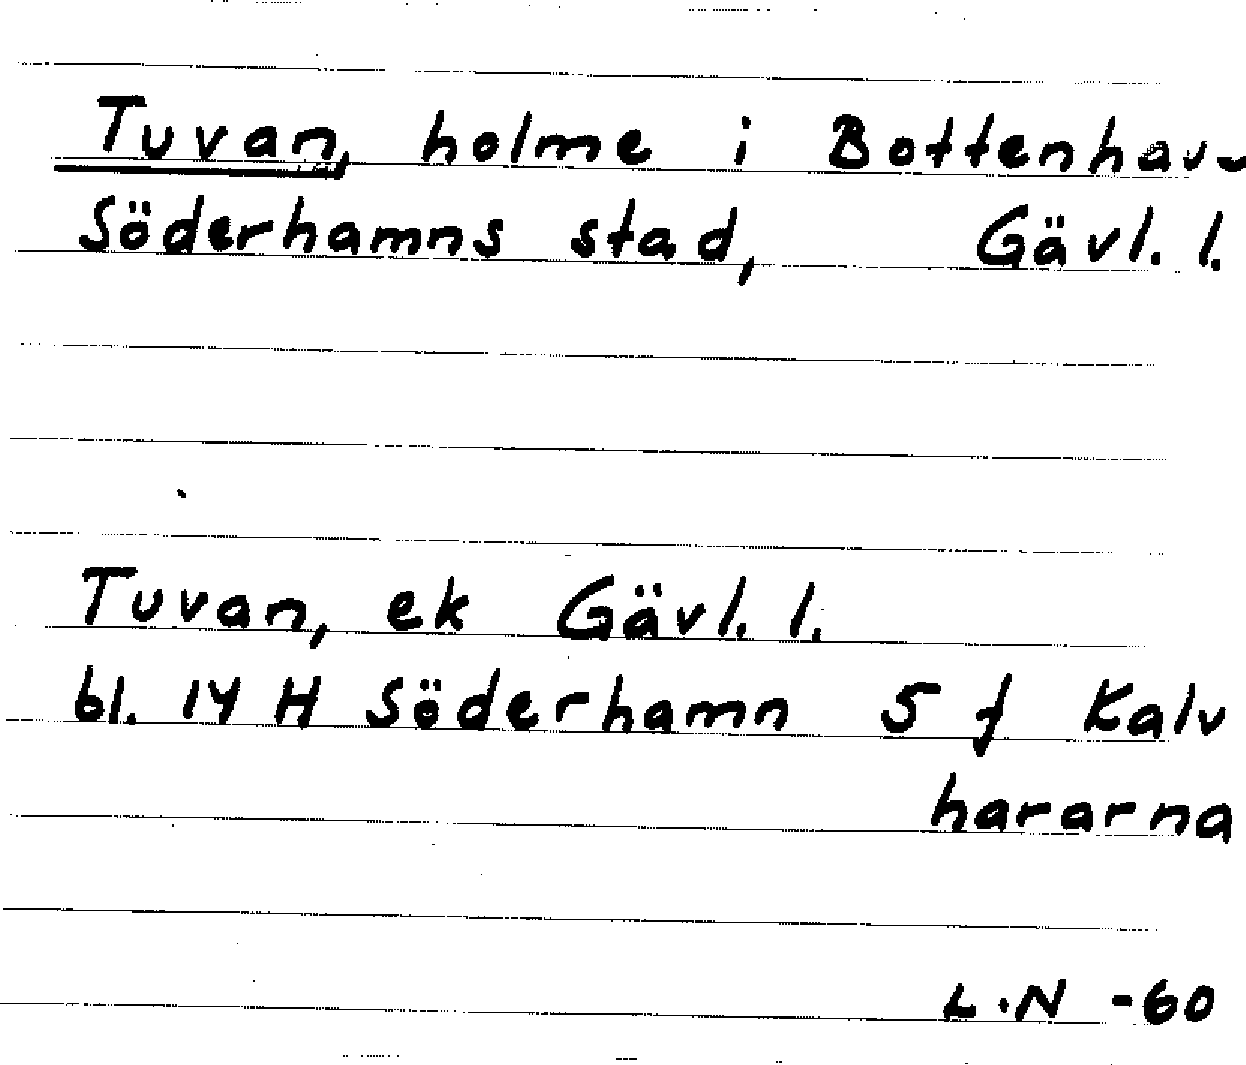 Tuvan, holme i Bottenhav
Söderhamns stad, Gävl. l.
Tuvan, ek Gävl. l.
bl. 14 H Söderhamn 5 f Kalv
hararna
L.N -60